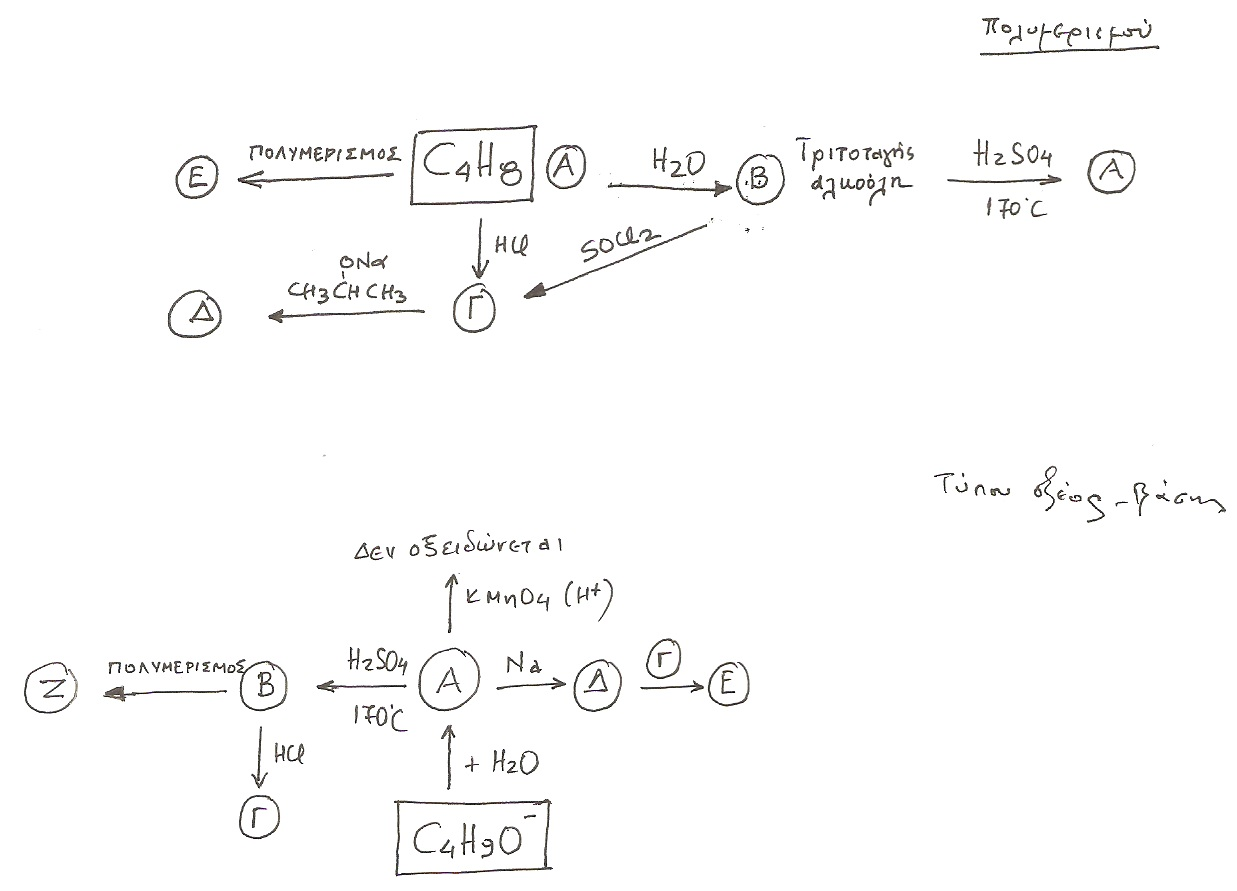 Πολυμερισμού
ΠΟΛΥΜΕΡΙΣΜΟΣ
C4H8
A
H2O
B
Τριτοταγής
αλκοόλη
H2SO4
170°C
A
E
HCl
SOCl2
ONa
CH3CHCH3
Δ
Γ
Τύπου οξέος-βάσης
Δεν οξειδώνεται
KMnO4 (H+)
Z
ΠΟΛΥΜΕΡΙΣΜΟΣ
B
H2SO4
170°C
A
Na
Δ
Γ
E
HCl
+ H2O
Γ
C4H9O-